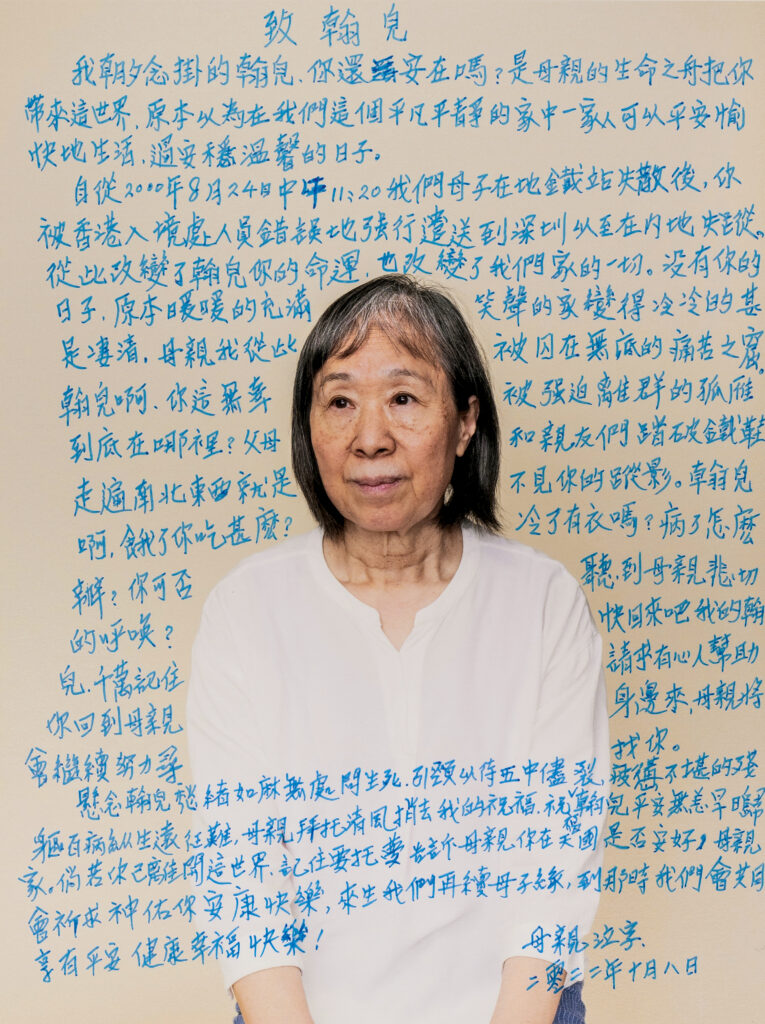 致翰兒
我朝夕念掛的翰兒．你還安在嗎？是母親的生命之舟把你
帶來這世界．原本以為在我們這個平凡平靜的家中一家人可以平安愉
快地生活，過安穩溫馨的日子。
自從2000年8月24日中午11:20我們母子在地鐵站失散後，你
被香港入境處人員錯誤地強行遣送到深圳以至在內地失蹤。
從此改變了翰兒你的命運，也改變了我們家的一切。没有你的
日子．原本暖暖的充滿笑聲的家變得冷冷的甚
是凄清．母親我從此被囚在無底的痛苦之窟。
翰兒啊．你這無辜被强迫離群的孤雁
到底在哪裡？父母和親友們踏破鐵鞋
走遍南北東西就是不見你的蹤影。翰兒
啊．餓了你吃甚麼？冷了有衣嗎？病了怎麼
辦？你可否聽到母親悲切
的呼喚？快回來吧我的翰
兒．千萬記住請求有心人幫助
你回到母親身邊來，母親將
會繼續努力尋找你。
懸念翰兒愁緒如麻無處問生死．引頸以待五中儘裂．疲憊不堪的殘
軀百病叢生遠征難，母親拜托清風捎去我的祝福．祝翰兒平安無恙早日歸
家。倘若你已離開這世界．記住要托夢告訴母親你在天國是否安好，母親
會祈求神佑你安康快樂，來生我們再續母子緣，到那時我們會共同
享有平安健康幸福快樂！
母親泣字．
二零二二年十月八日